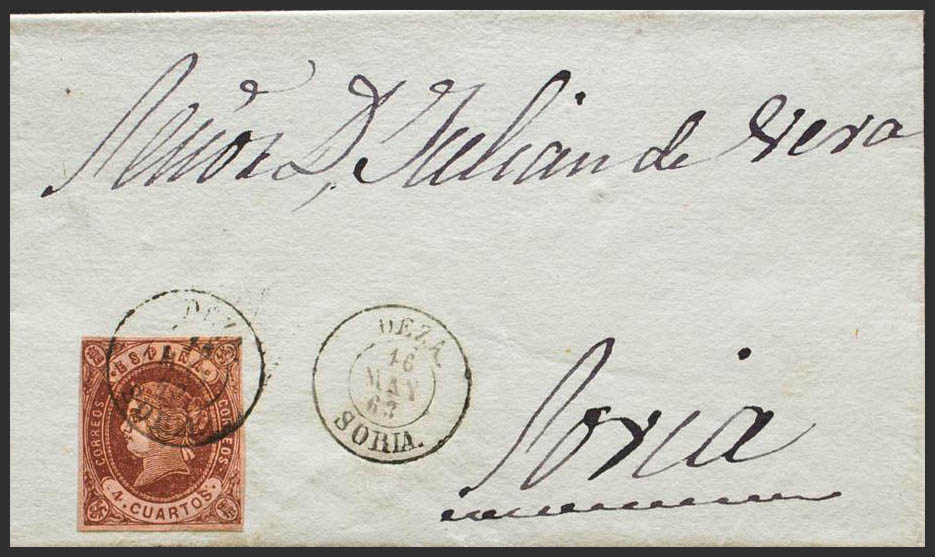 Señor D. Julian de Vera
DEZA
16
MAY
63
SORIA.
ESPAÑA
CORREOS
CORREOS
4 CUARTOS
Soria